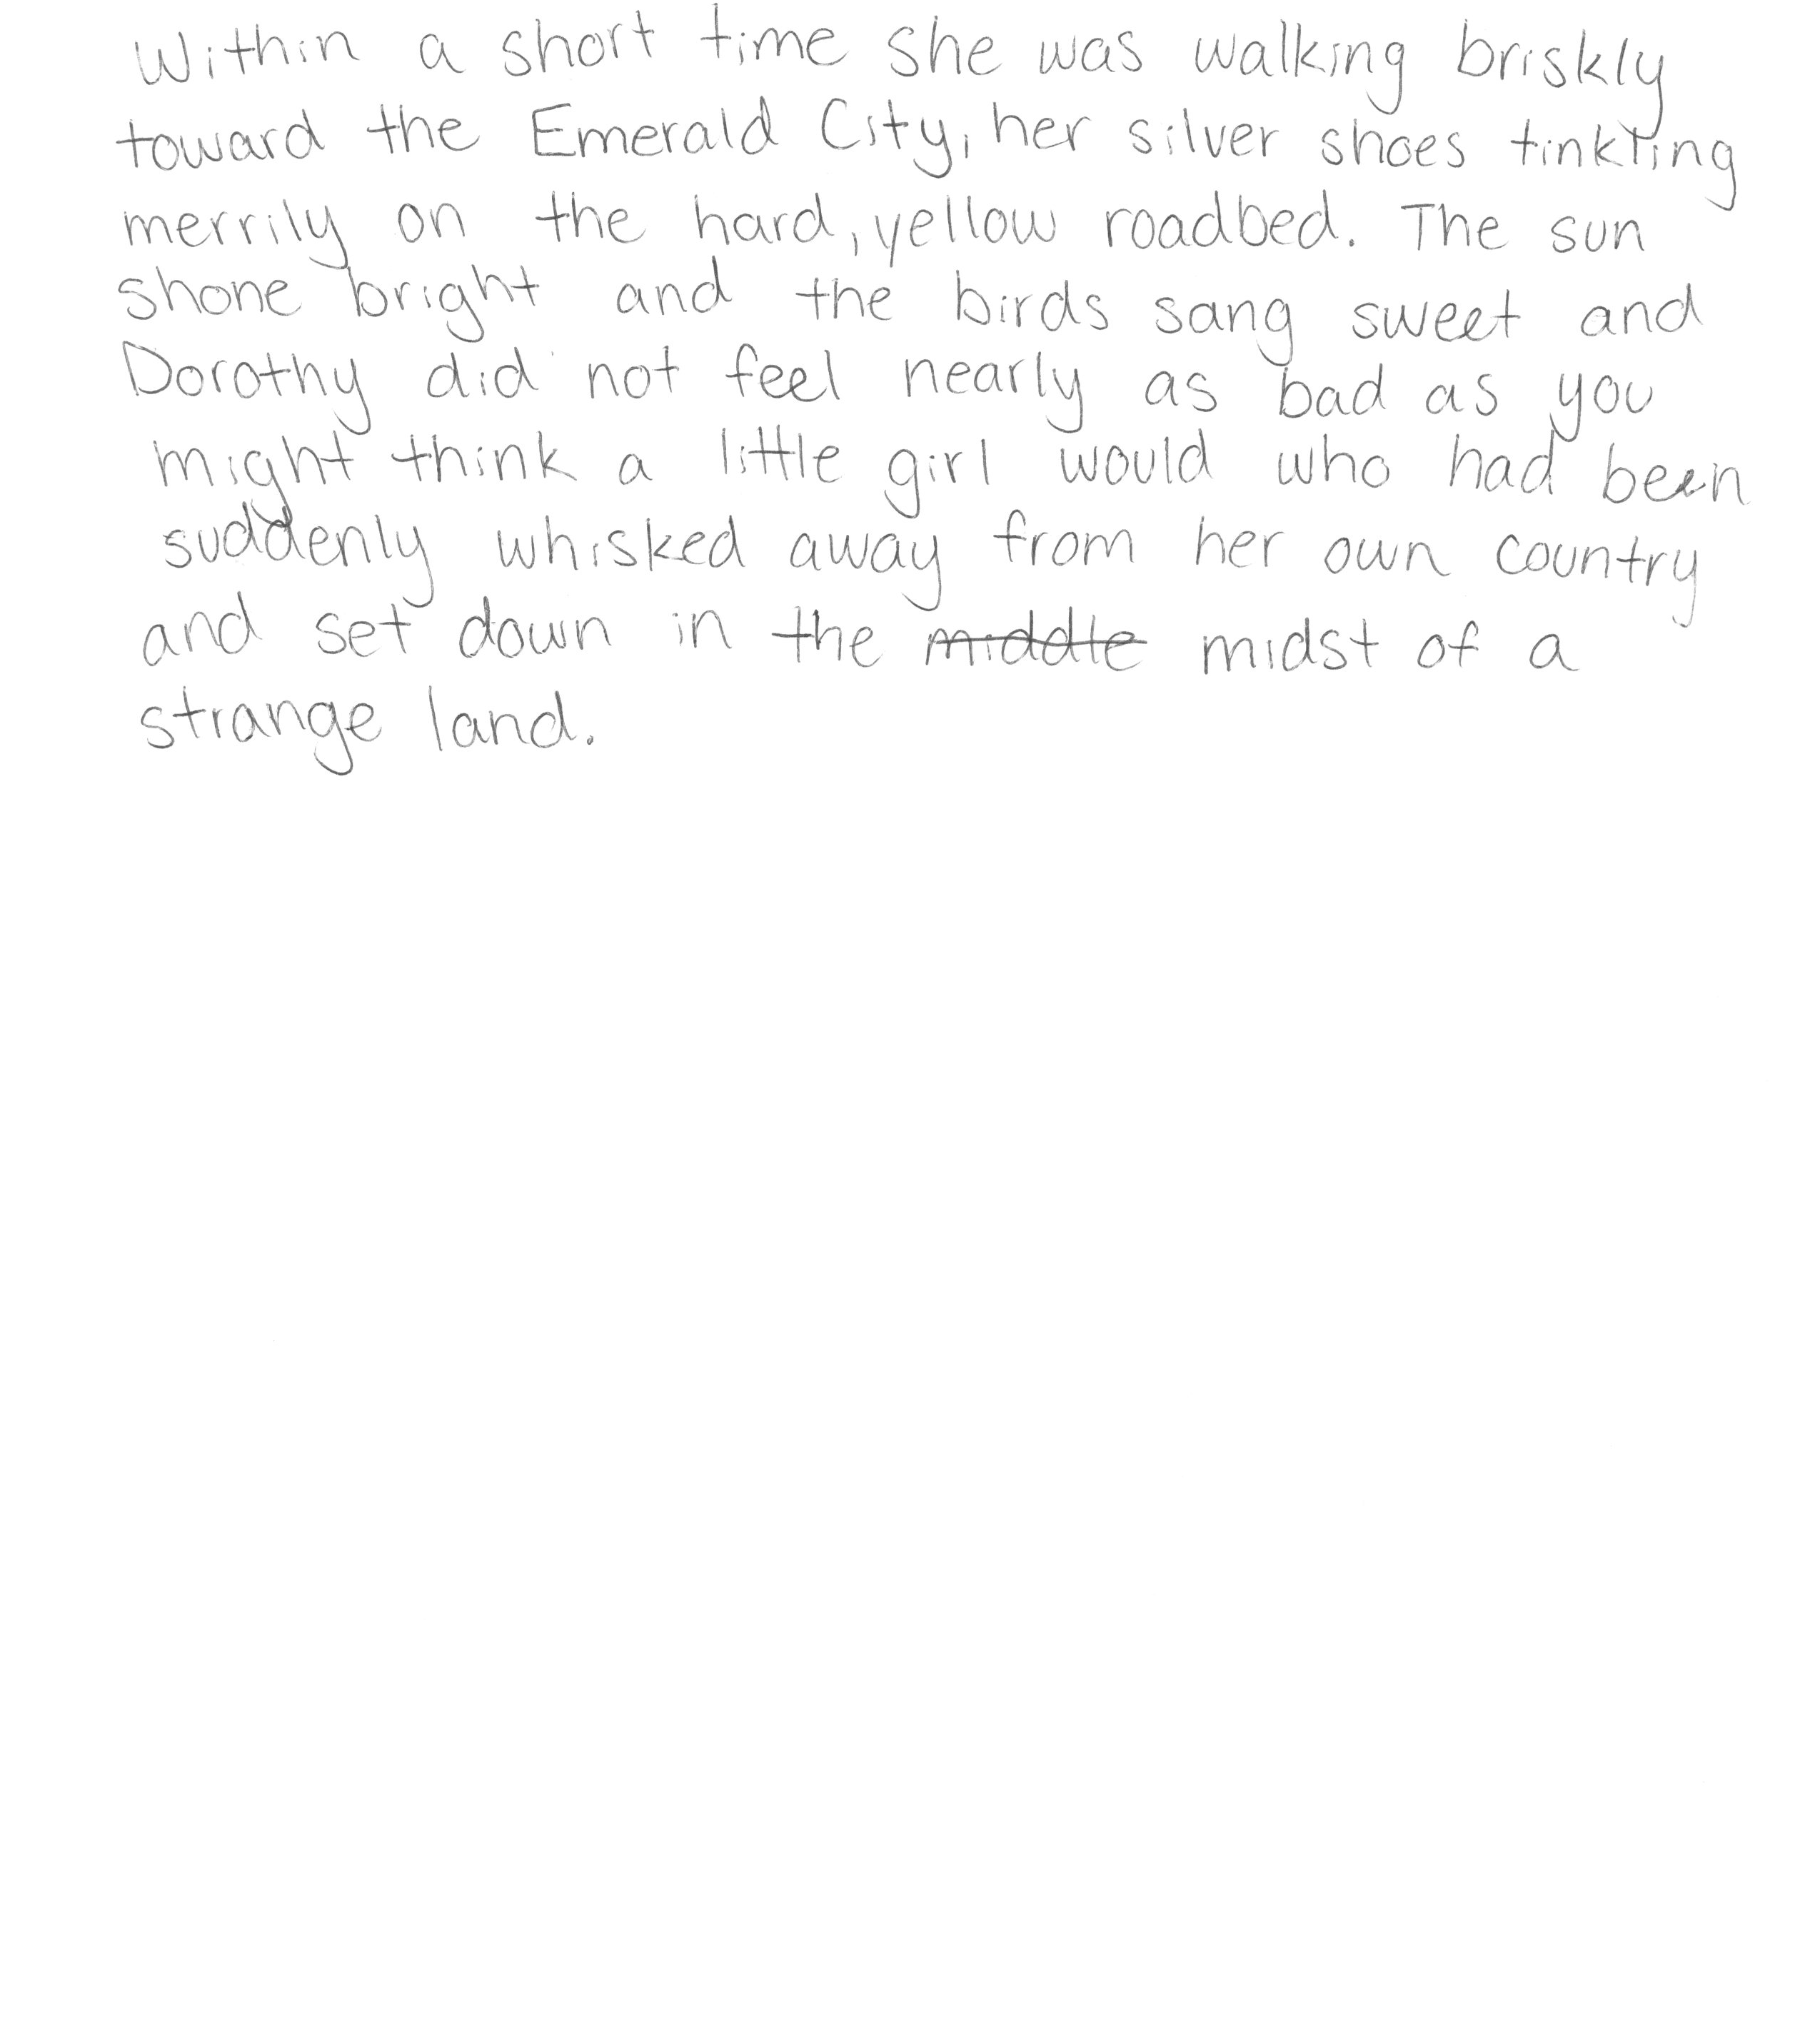 Within a short time she was walking briskly
toward the Emerald City, her silver shoes tinkling
merrily on the hard, yellow roadbed. The sun
shone bright and the birds sang sweet and
Dorothy did not feel nearly as bad as you
might think a little girl would who had been
suddenly whisked away from her own country
and set down in the middle midst of a
strange land.